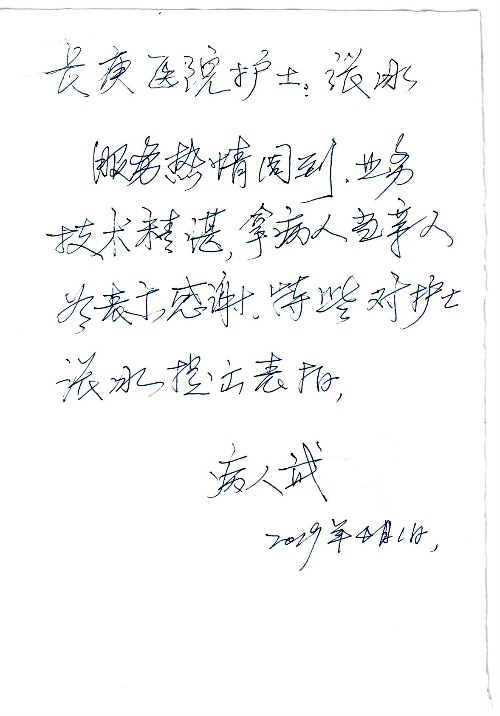 长庚医院护士:张冰
服务热情周到、业务
技术精湛,拿病人当亲人
为表示感谢、特此对护士
张冰提出表扬,
病人武
2029年4月1日,